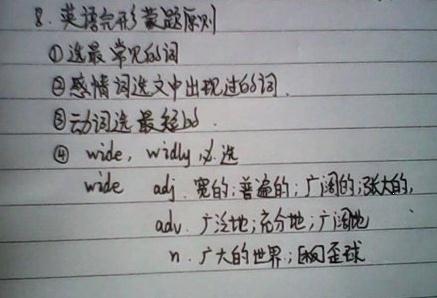 8. 英语完形蒙题原则
①选最常见的词
②感情词选文中出现过的词.
③动词选最短的.
④ wide, widly 必选
wide adj. 宽的;普遍的;广阔的;张大的,
adv. 广泛地;充分地;广阔地
n. 广大的世界; 歪球